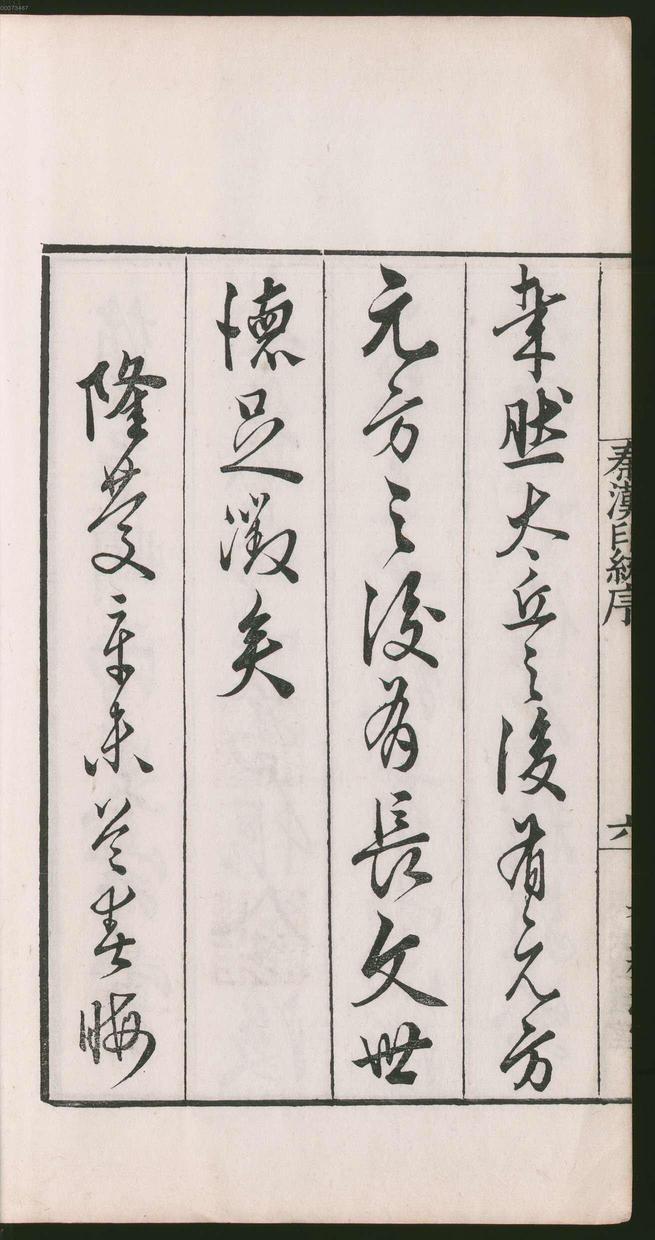 00073467
秦漢印統序
六
肇然太丘之後有元方
元方之後有長文世
德足徵矣
隆慶辛未暮春晦